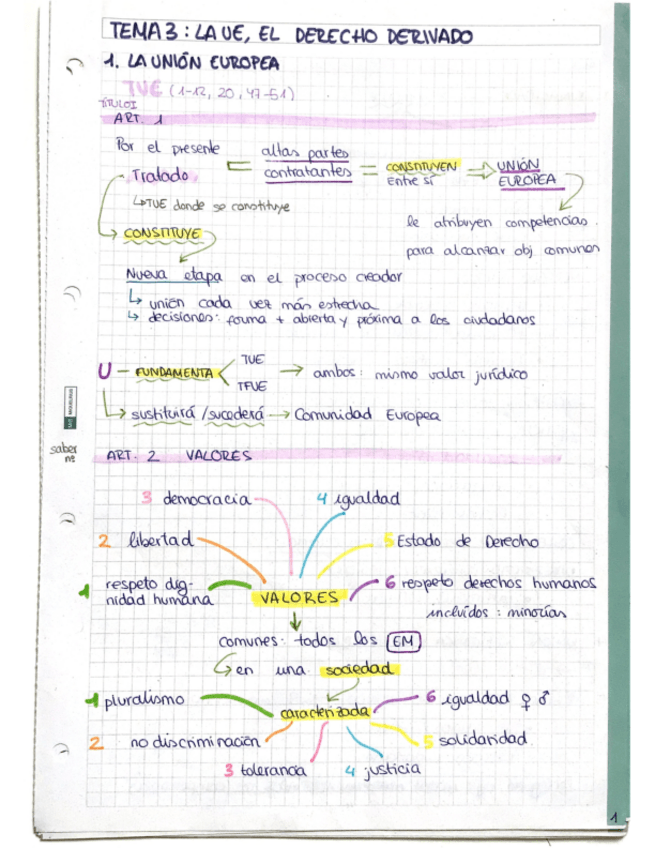 TEMA 3: LA UE, EL DERECHO DERIVADO
1. LA UNIÓN EUROPEA
TUE (1-12, 20, 47-51)
TÍTULO I
ART. 1
Por el presente Tratado = altas partes contratantes = CONSTITUYEN entre sí ⇒ UNIÓN EUROPEA
↳ TUE donde se constituye
le atribuyen competencias
para alcanzar obj comunes
CONSTITUYE
Nueva etapa en el proceso creador
↳ unión cada vez más estrecha
↳ decisiones: forma + abierta y próxima a los ciudadanos
U - FUNDAMENTA < TUE
TFUE
→ ambos: mismo valor jurídico
↳ sustituirá / sucederá → Comunidad Europea
saber
nº
ART. 2 VALORES
3 democracia
4 igualdad
2 libertad
5 Estado de Derecho
1 respeto dig-
nidad humana
VALORES
6 respeto derechos humanos
incluidos: minorías
comunes: todos los EM
↳ en una sociedad
1 pluralismo
caracterizada
6 igualdad ♀ ♂
2 no discriminación
5 solidaridad
3 tolerancia
4 justicia
1